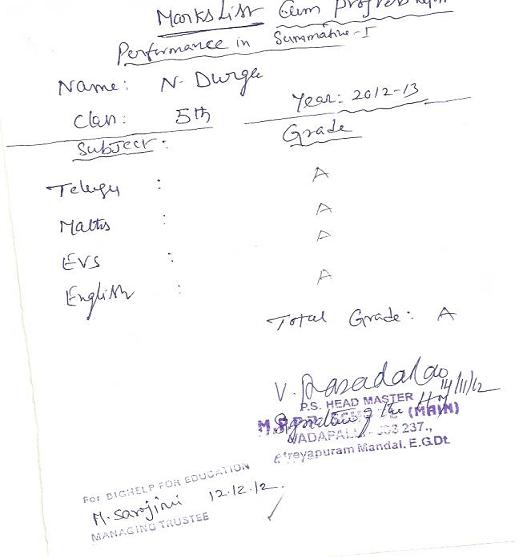 Marks List Cum Progress
Performance in Summative-I
Name: N. Durga
Class: 5th Year: 2012-13
Subject: Grade
Telugu : A
Maths : A
EVS : A
English : A
Total Grade: A
14/11/12
P.S. HEAD MASTER
(MAIN)
VADAPALLI 237.,
Atreyapuram Mandal. E.G.Dt.
For BIGHELP FOR EDUCATION
M. Sarojini 12.12.12.
MANAGING TRUSTEE